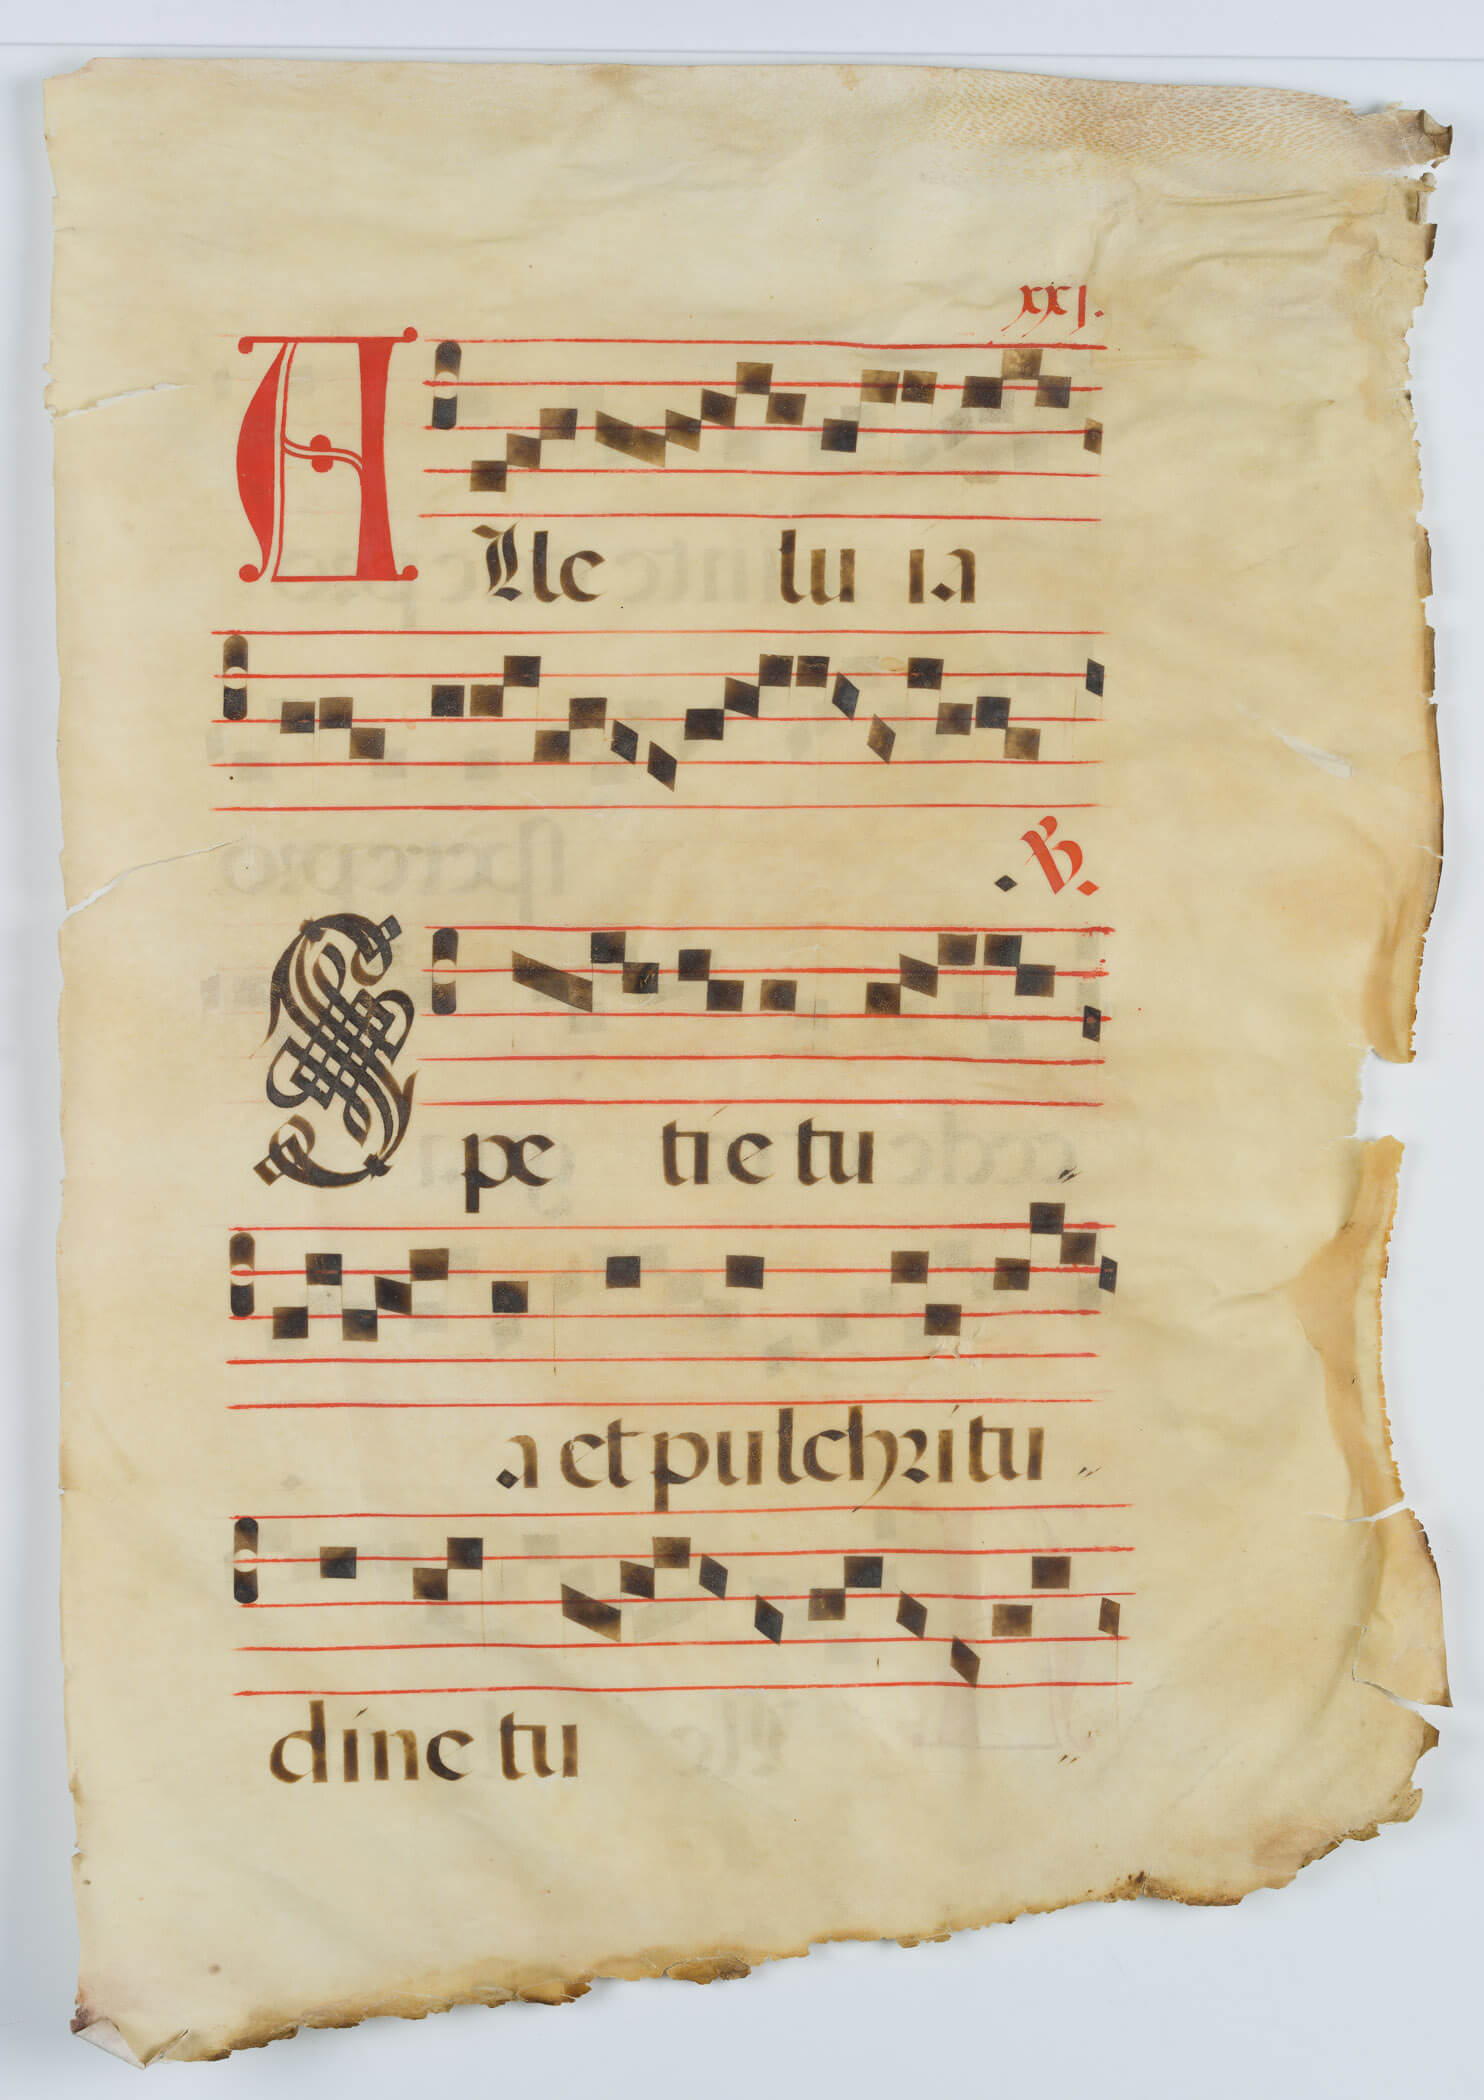 xxj.
Alle lu ia
. ℣.
Spe tie tu "
a et pulchritu "
dine tu "